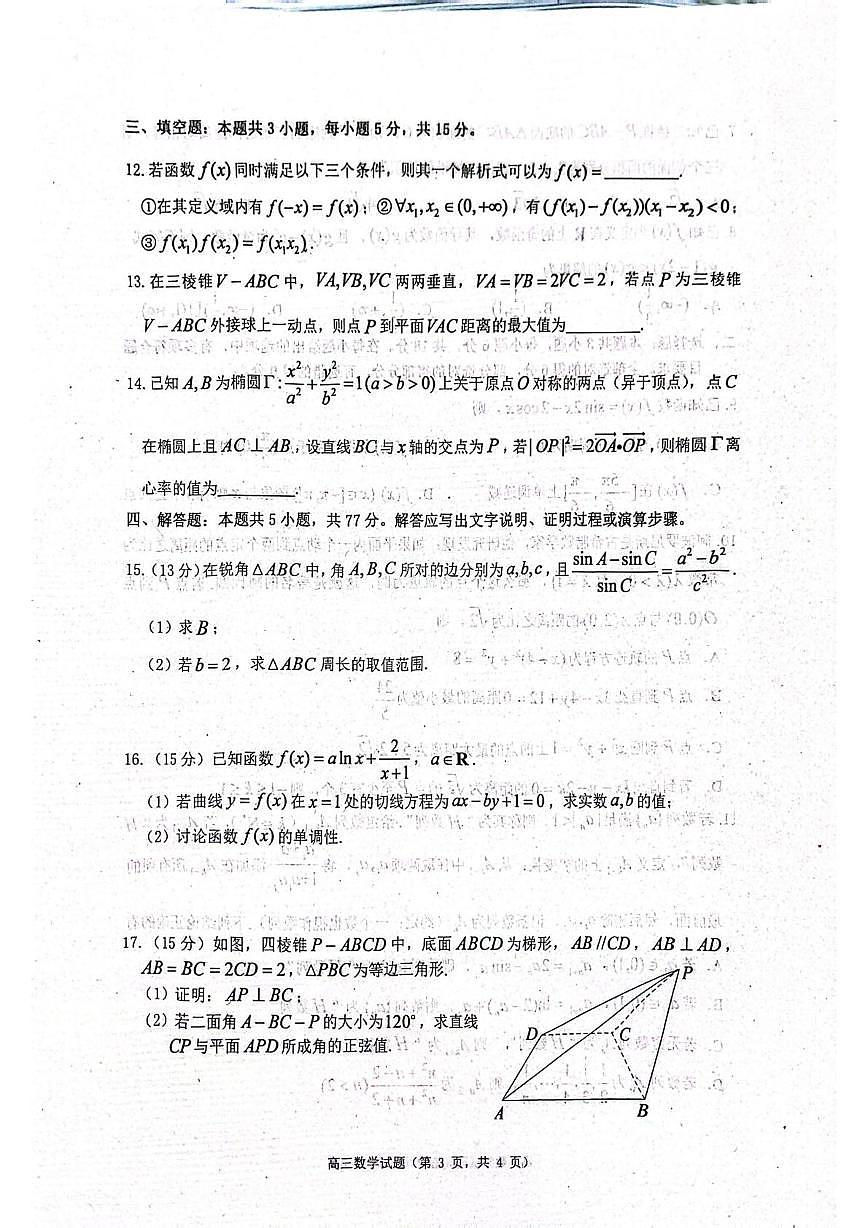 三、填空题：本题共3小题，每小题5分，共15分。
12.若函数 f(x) 同时满足以下三个条件，则其一个解析式可以为 f(x) = ________.
①在其定义域内有 f(-x) = f(x)；②∀x₁, x₂ ∈ (0,+∞)，有 (f(x₁)-f(x₂))(x₁-x₂) < 0；
③ f(x₁)f(x₂) = f(x₁x₂).
13.在三棱锥 V-ABC 中，VA,VB,VC 两两垂直，VA = VB = 2VC = 2，若点 P 为三棱锥
V-ABC 外接球上一动点，则点 P 到平面 VAC 距离的最大值为________.
14.已知 A,B 为椭圆 Γ: x²/a² + y²/b² = 1(a > b > 0) 上关于原点 O 对称的两点（异于顶点），点 C
在椭圆上且 AC ⊥ AB，设直线 BC 与 x 轴的交点为 P，若 |OP|² = 2OA•OP，则椭圆 Γ 离
心率的值为________.
四、解答题：本题共5小题，共77分。解答应写出文字说明、证明过程或演算步骤。
15.（13分）在锐角△ABC 中，角 A,B,C 所对的边分别为 a,b,c，且 (sin A - sin C)/sin C = (a² - b²)/c².
（1）求 B；
（2）若 b = 2，求△ABC 周长的取值范围.
16.（15分）已知函数 f(x) = a ln x + 2/(x+1)，a∈R.
（1）若曲线 y = f(x) 在 x = 1 处的切线方程为 ax - by + 1 = 0，求实数 a,b 的值；
（2）讨论函数 f(x) 的单调性.
17.（15分）如图，四棱锥 P-ABCD 中，底面 ABCD 为梯形，AB//CD，AB ⊥ AD，
AB = BC = 2CD = 2，△PBC 为等边三角形.
（1）证明：AP ⊥ BC；
（2）若二面角 A-BC-P 的大小为120°，求直线
CP 与平面 APD 所成角的正弦值.
P
D
C
A
B
高三数学试题（第 3 页，共 4 页）